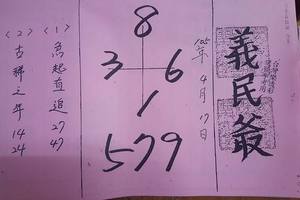 義民爺
105年4月17日
8
3 6
1
579
(1)
急起直追
27
47
(2)
古稀之年
14
24